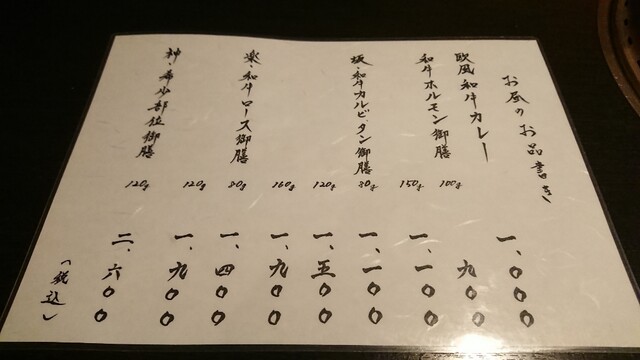 お昼のお品書き
欧風和牛カレー
一、〇〇〇
和牛ホルモン御膳
100g 九〇〇
150g 一、一〇〇
坂・和牛カルビ・タン御膳
80g 一、一〇〇
120g 一、五〇〇
160g 一、九〇〇
楽・和牛ロース御膳
80g 一、四〇〇
120g 一、九〇〇
神・希少部位御膳
120g 二、六〇〇
(税込)